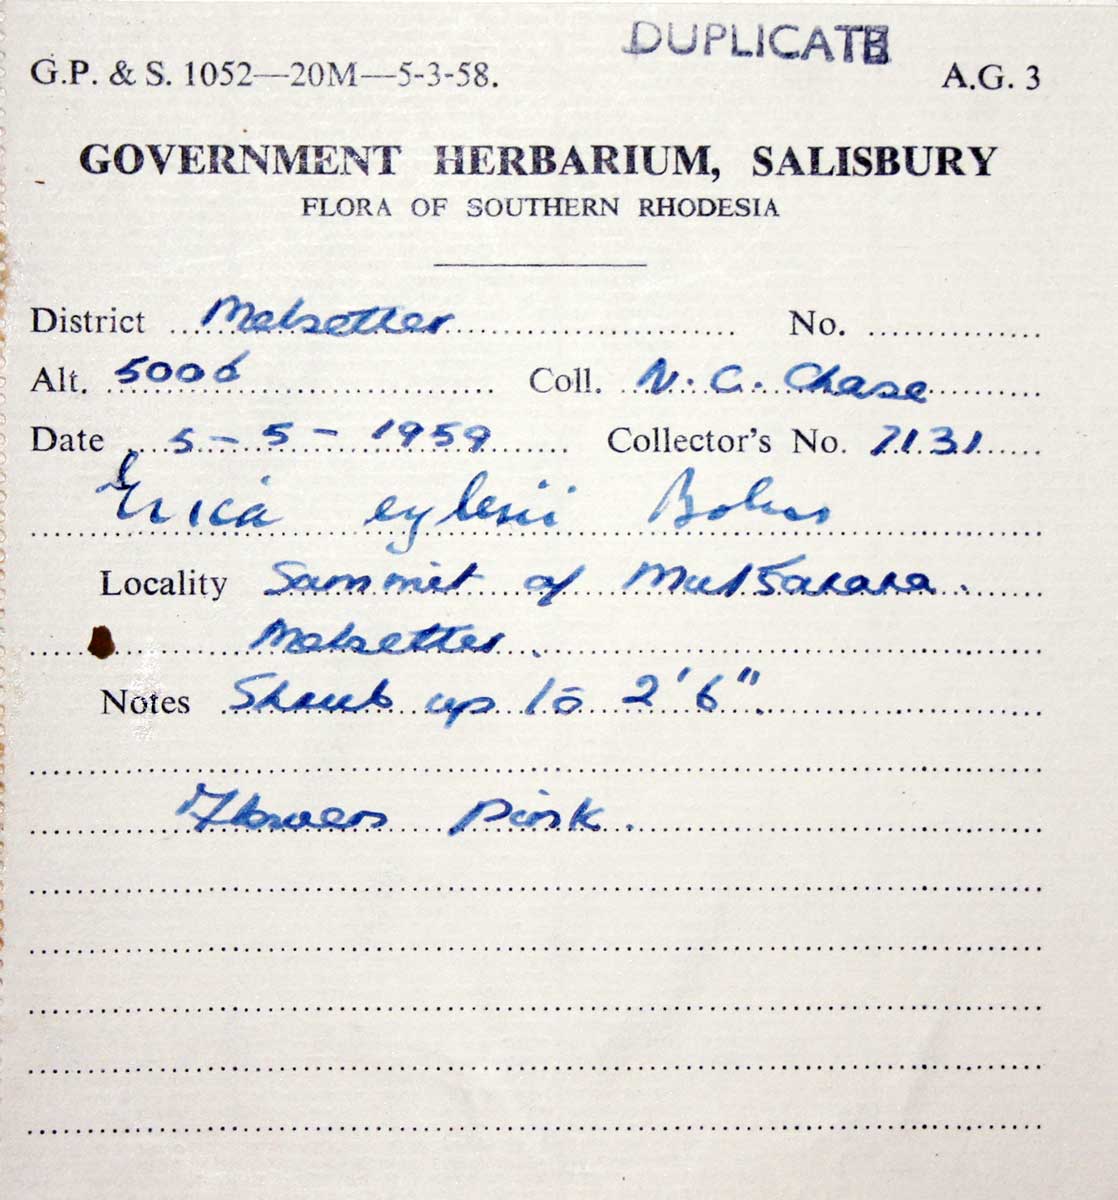 DUPLICATE
G.P. & S. 1052—20M—5-3-58. A.G. 3
GOVERNMENT HERBARIUM, SALISBURY
FLORA OF SOUTHERN RHODESIA
District Melsetter No.
Alt. 5000 Coll. N. C. Chase
Date 5 - 5 - 1959 Collector's No. 7131
Erica eylesii Bolus
Locality Summit of
Melsetter.
Notes Shrub up to 2' 6".
Flowers pink.